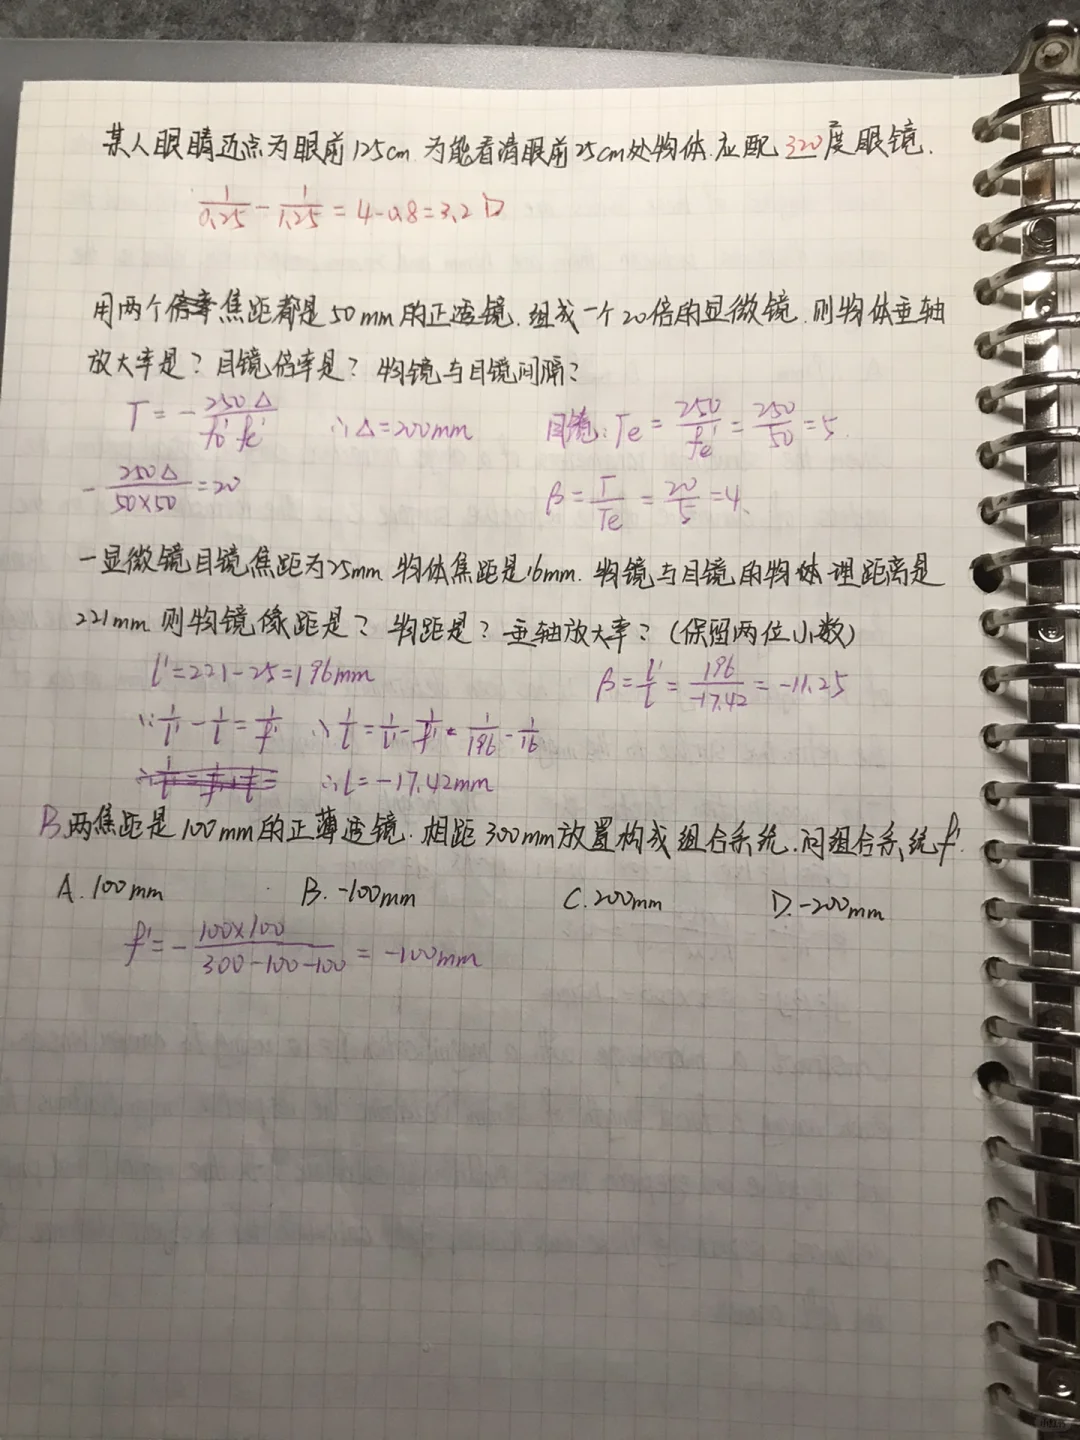 某人眼睛近点为眼前125cm 为能看清眼前25cm处物体.应配320度眼镜.
1/0.25 - 1/1.25 = 4-0.8=3.2D
用两个倍率焦距都是50mm的正透镜.组成一个20倍的显微镜.则物体垂轴
放大率是?目镜倍率是?物镜与目镜间隔?
T = - 250Δ/fo'fe' ∴Δ=200mm 目镜:Te = 250/fe' = 250/50 =5.
- 250Δ/50×50 =20 β= T/Te = 20/5 =4.
一显微镜目镜焦距为25mm 物体焦距是16mm.物镜与目镜的物体理距离是
221mm 则物镜像距是?物距是?垂轴放大率?(保留两位小数)
l'=221-25=196mm β= l'/l = 196/-17.42 = -11.25
∵ 1/l' - 1/l = 1/f' ∴ 1/l = 1/l' - 1/f' = 1/196 - 1/16
∴l=-17.42mm
B.两焦距是100mm的正薄透镜.相距300mm放置构成组合系统.问组合系统f'.
A.100mm B.-100mm C.200mm D.-200mm
f'= - 100×100/300-100-100 = -100mm